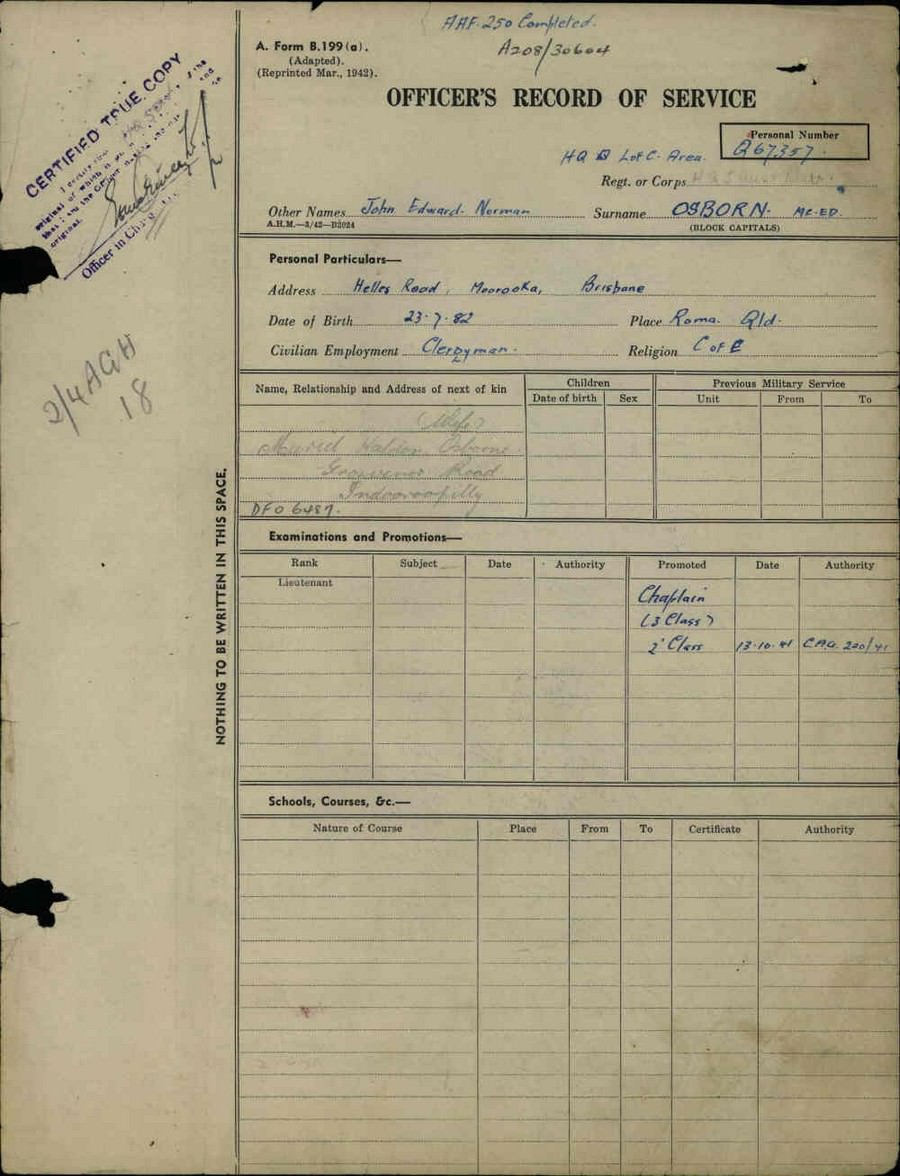 AAF. 250 Completed.
A208/30604
A. Form B.199 (a).
(Adapted).
(Reprinted Mar., 1942).
OFFICER'S RECORD OF SERVICE
Personal Number
Q67357.
HQ Q L of C. Area.
Regt. or Corps
Other Names John Edward Norman Surname OSBORN. MC. ED.
A.H.M.—3/42—B2024 (BLOCK CAPITALS)
Personal Particulars—
Address Helles Road, Moorooka, Brisbane
Date of Birth 23.7.82 Place Roma. Qld.
Civilian Employment Clergyman. Religion C of E
Name, Relationship and Address of next of kin Children Previous Military Service
Date of birth Sex Unit From To
(Wife)
Muriel Osborne
Grosvenor Road
Indooroopilly
DFO 6487.
Examinations and Promotions—
Rank Subject Date Authority Promoted Date Authority
Lieutenant
Chaplain
(3 Class)
2' Class 13.10.41 C.A.G. 220/41
Schools, Courses, &c.—
Nature of Course Place From To Certificate Authority
CERTIFIED TRUE COPY
original
Officer in
2/4 AGH
18
NOTHING TO BE WRITTEN IN THIS SPACE.